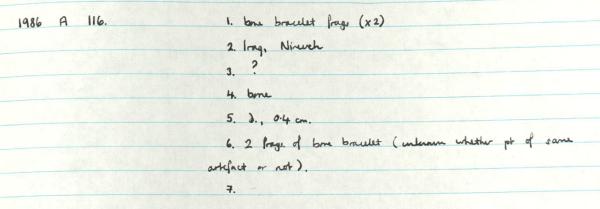 1986 A 116. 1. bone bracelet frags (x2)
2. Iraq, Nineveh
3. ?
4. bone
5. d., 0.4 cm.
6. 2 frags of bone bracelet (unknown whether pt of same
artefact or not).
7.